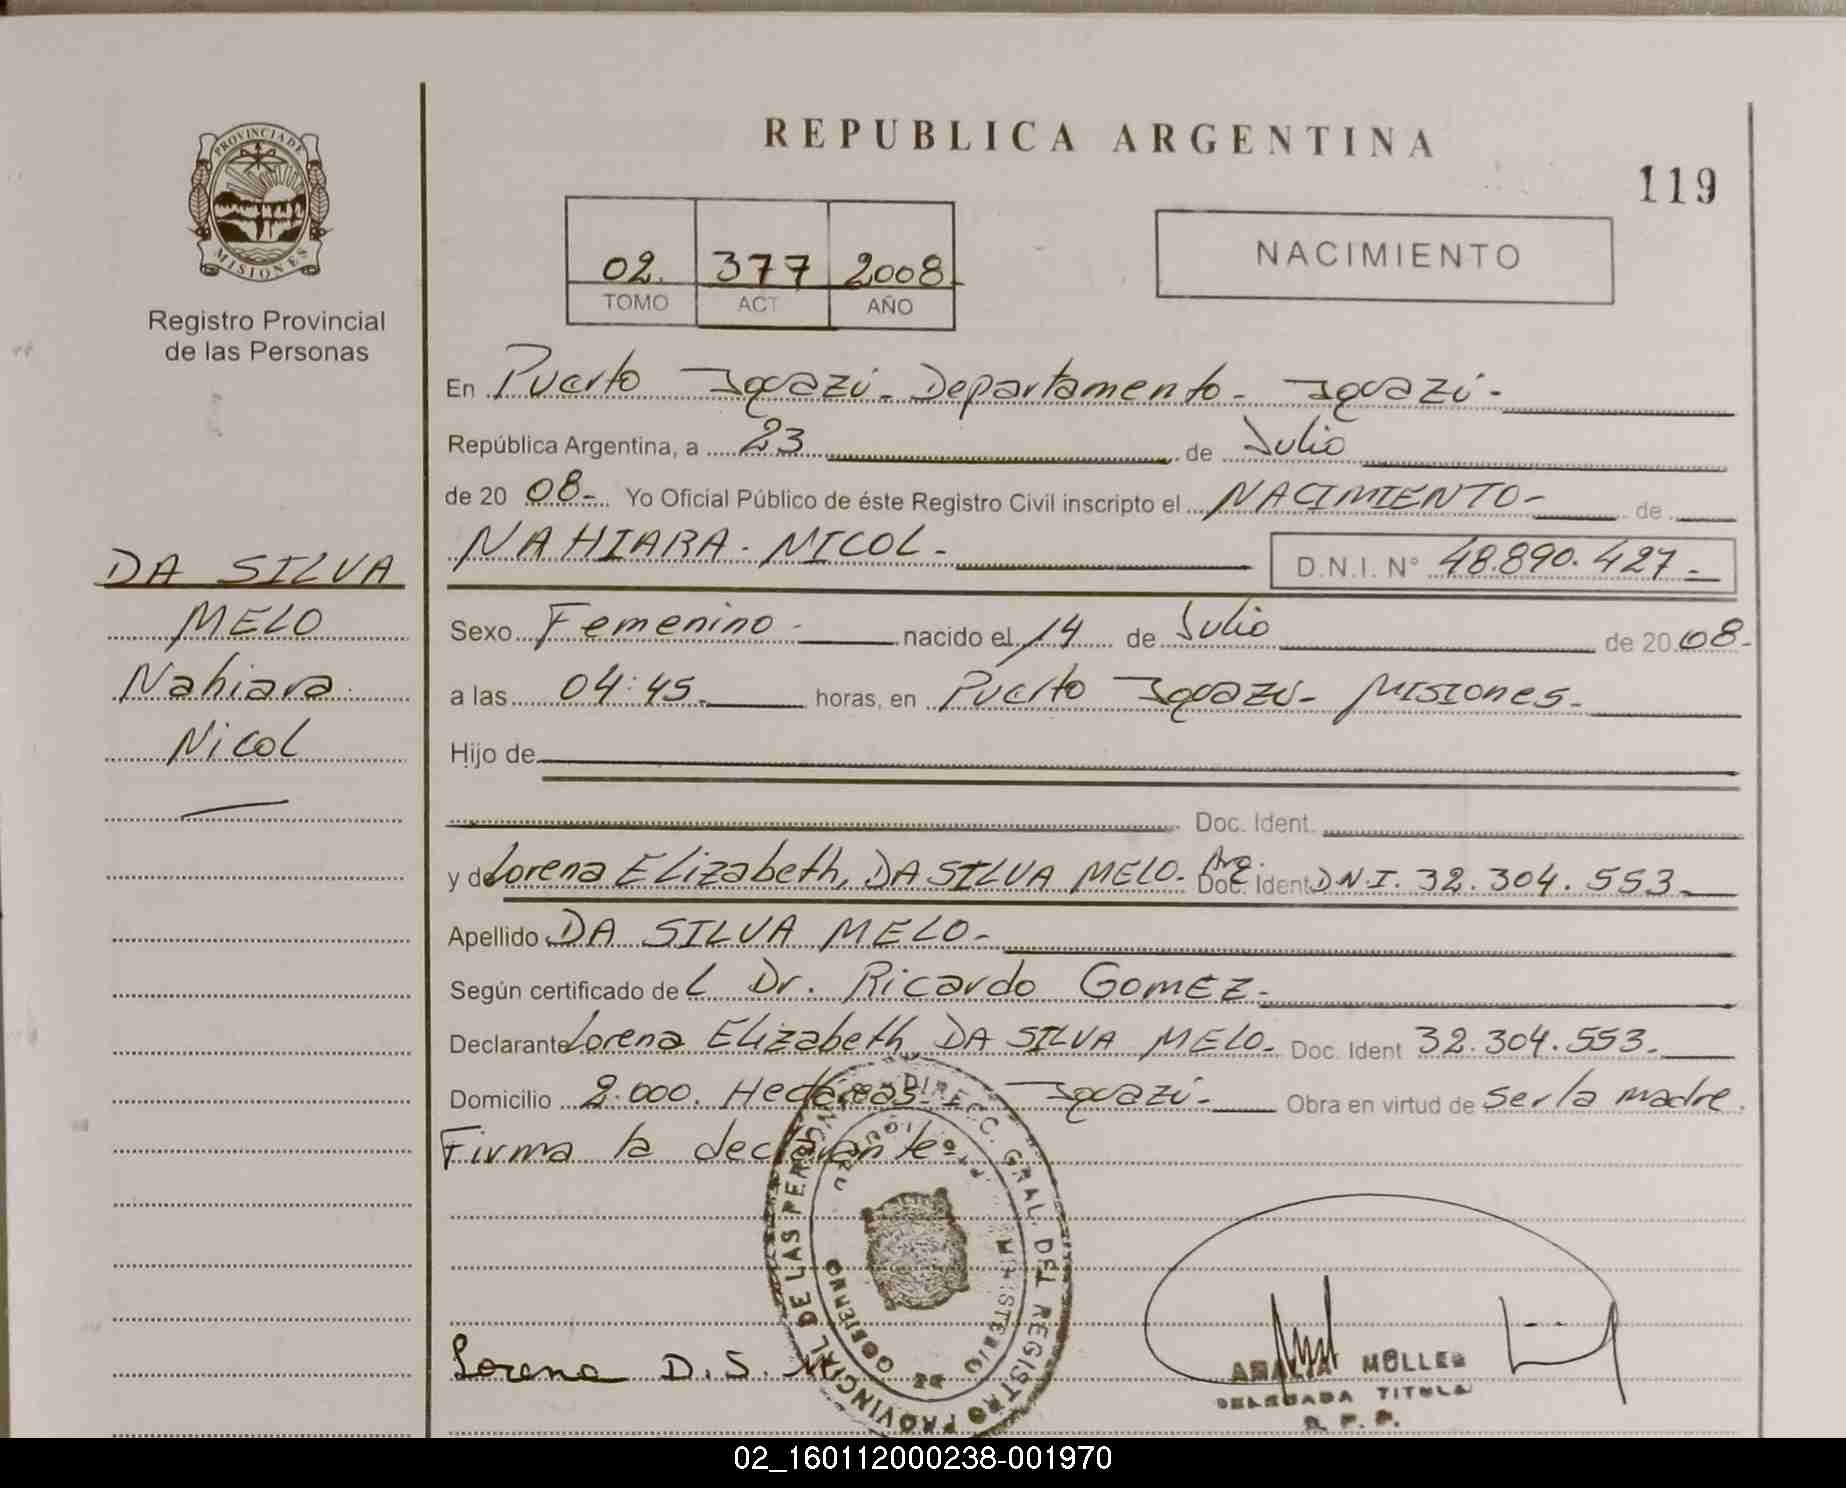 REPUBLICA ARGENTINA
119
PROVINCIA DE
MISIONES
Registro Provincial
de las Personas
02. 377 2008
TOMO ACT AÑO
NACIMIENTO
En Puerto Iguazú - Departamento - Iguazú -
República Argentina, a 23 de Julio
de 20 08 - Yo Oficial Público de éste Registro Civil inscripto el NACIMIENTO - de
NAHIARA - NICOL - D.N.I. N° 48.890.427 -
DA SILVA
MELO
Nahiara
Nicol
Sexo Femenino - nacido el 14 de Julio de 20 08 -
a las 04:45 - horas, en Puerto Iguazú - Misiones -
Hijo de
Doc. Ident.
y de Lorena Elizabeth, DA SILVA MELO - Arg. Doc. Ident D.N.I. 32.304.553 -
Apellido DA SILVA MELO -
Según certificado de L Dr. Ricardo Gomez -
Declarante Lorena Elizabeth DA SILVA MELO - Doc. Ident 32.304.553 -
Domicilio 2.000. Hectáreas - Iguazú - Obra en virtud de ser la madre.
Firma la declarante -
DIRECC. GRAL. DEL REGISTRO PROVINCIAL DE LAS PERSONAS
MINISTERIO DE GOBIERNO
Lorena D. S. M
AMALIA MÜLLER
DELEGADA TITULA
R. P. P.
02_160112000238-001970